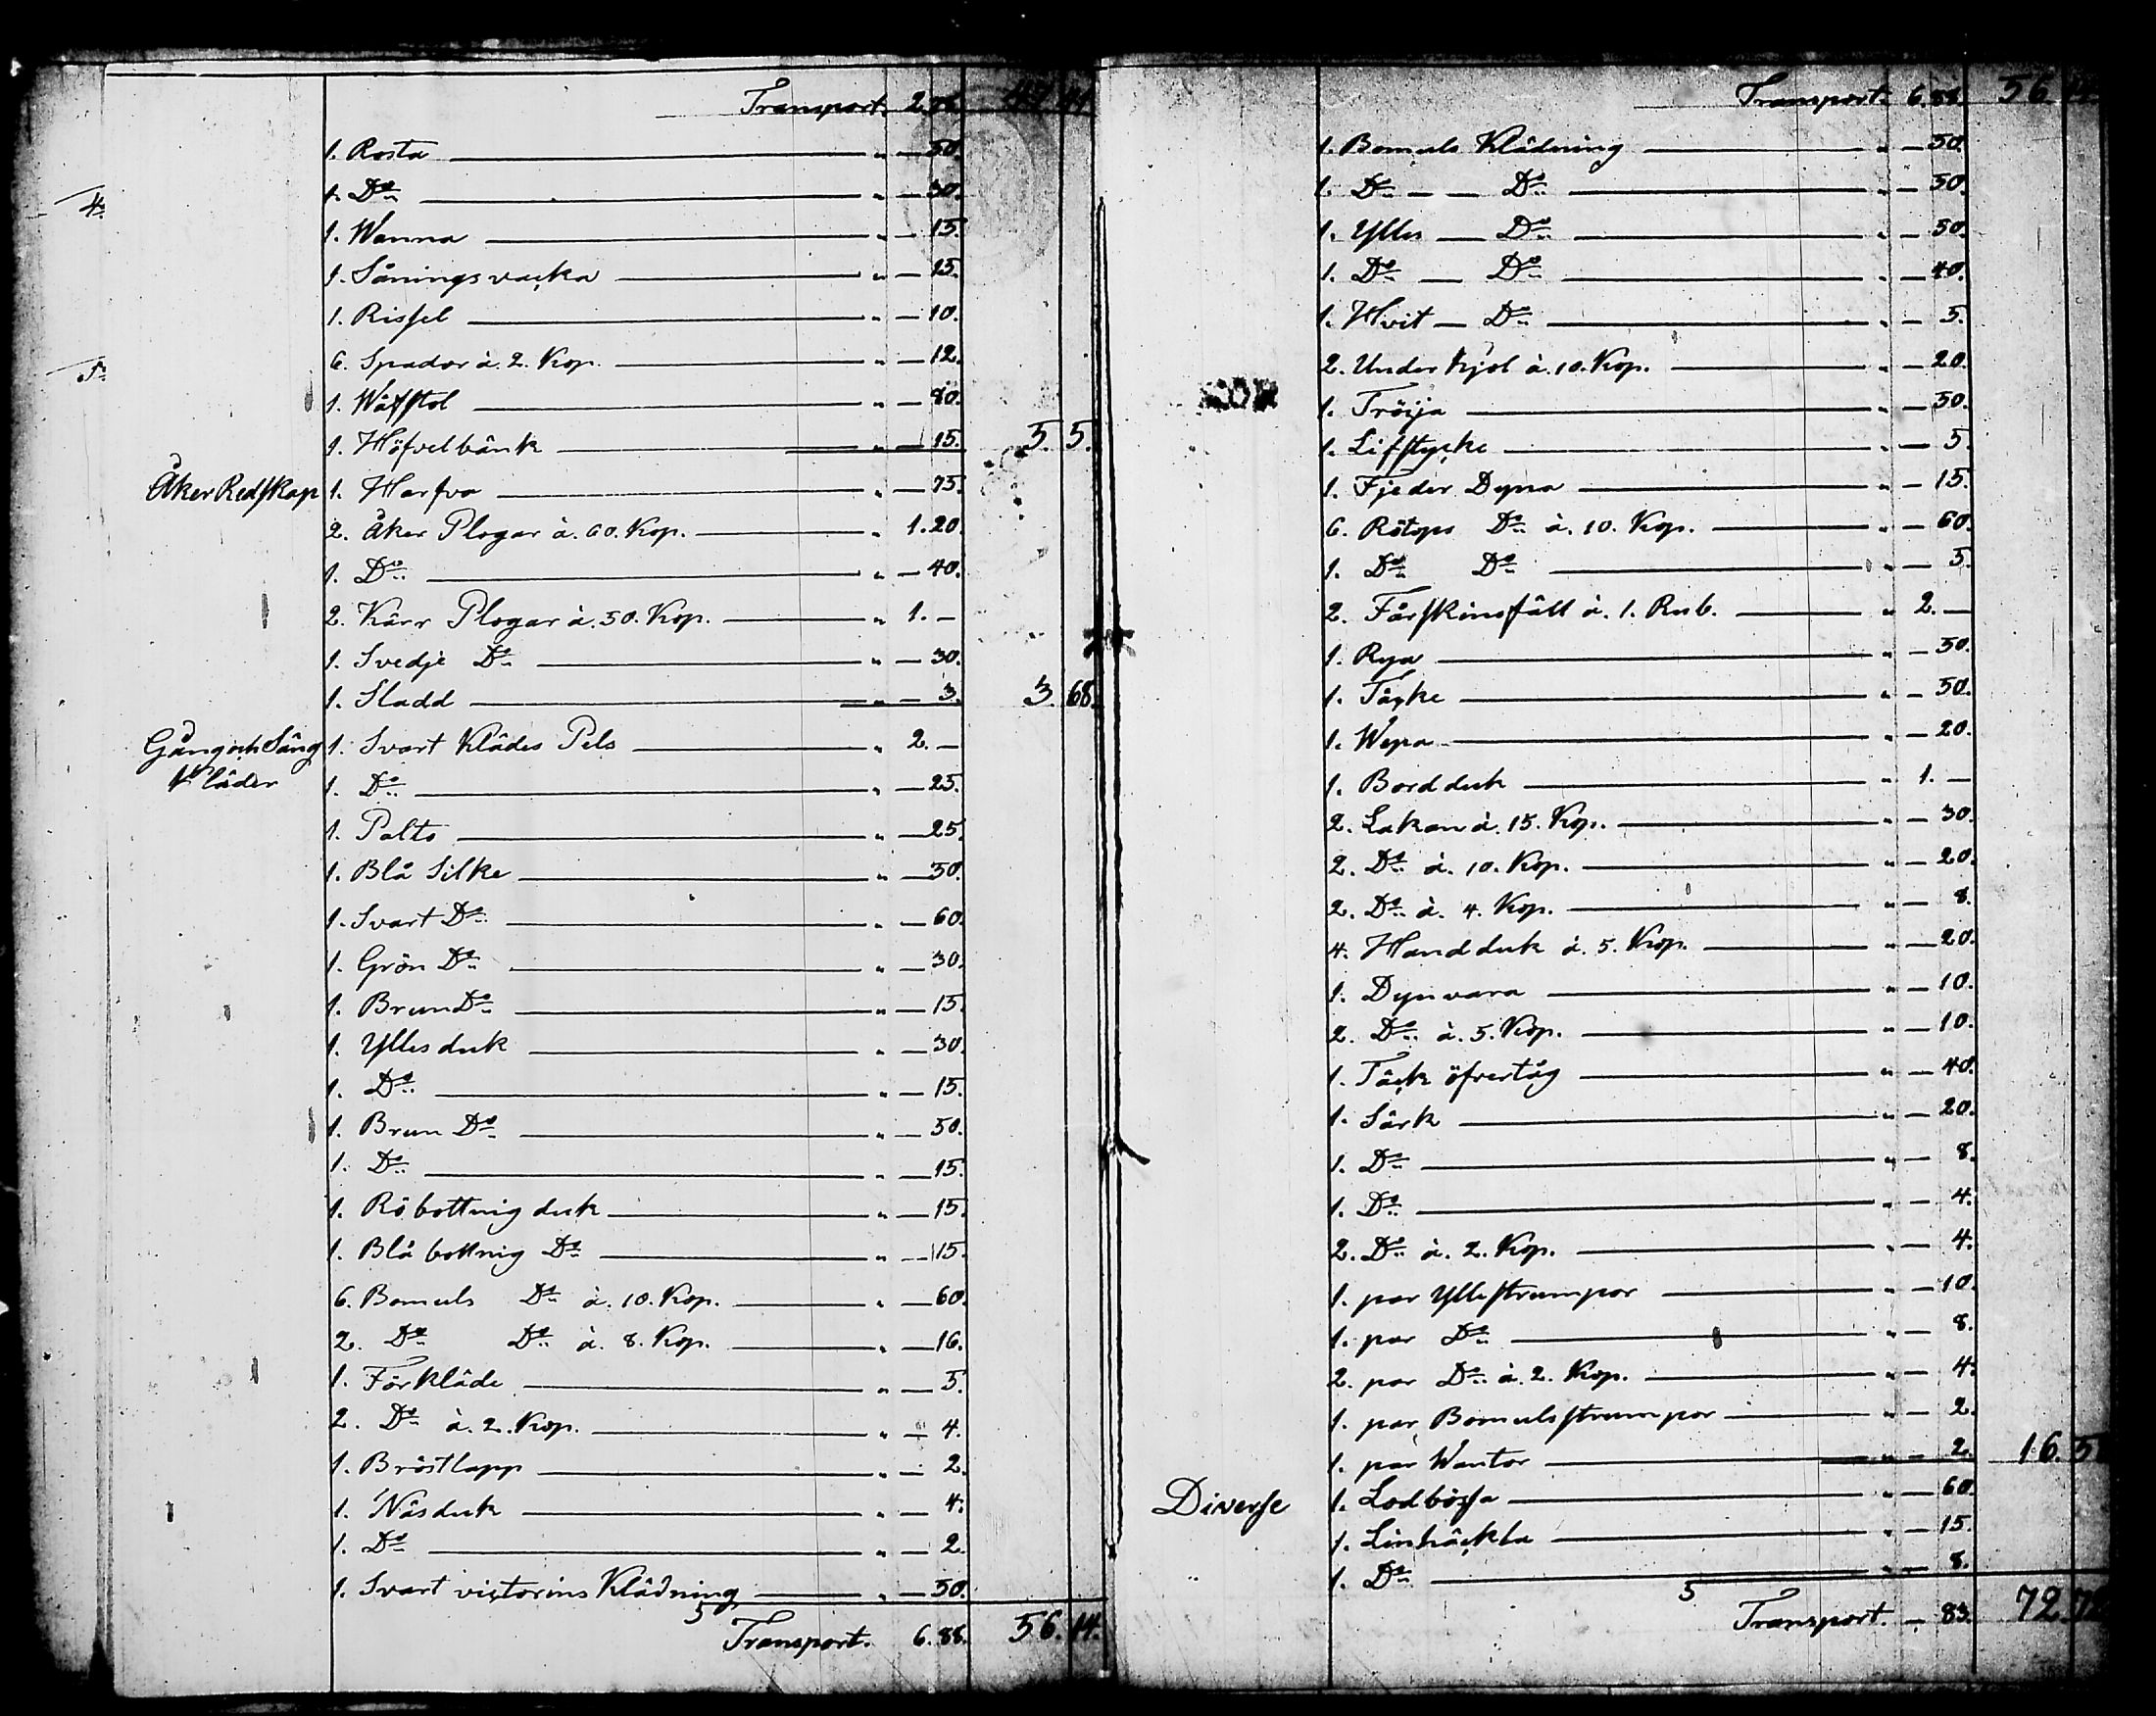 Transport. 2.76. 47 41.
1. Rosta " — 50.
1. Do " — 30.
4.
1. Wanna " — 15.
1. Såningsvacka " — 15.
1. Rissel " — 10.
6. Spador à. 2. Kop. " — 12.
1. Wäfstol " — 80.
1. Höfvelbänk " — 15. 5. 5.
Åker Redskap 1. Harfva " — 75.
2. Åker Plogar à. 60. Kop. " 1. 20.
1. Do " — 40.
2. Kärr Plogar à. 50. Kop. " 1. —
1. Svedje Do " — 30.
1. Sladd " — 3. 3. 68.
Gång och Säng 1. Svart Klädes Pels " 2. —
Kläder 1. Do " — 25.
1. Palto " — 25.
1. Blå Silke " — 50.
1. Svart Do " — 60.
1. Grön Do " — 30.
1. Brun Do " — 15.
1. Yllesduk " — 30.
1. Do " — 15.
1. Brun Do " — 50.
1. Do " — 15.
1. Röbottnig duk " — 15.
1. Blå bottnig Do " — 15.
6. Bomuls Do à. 10. Kop. " — 60.
2. Do Do à. 8. Kop. " — 16.
1. Förkläde " — 5.
2. Do à. 2. Kop. " — 4.
1. Bröstlapp " — 2.
1. Näsduk " — 4.
1. Do " — 2.
1. Svart victorins Klädning " — 50.
5 Transport. 6. 88. 56. 14.
Transport. 6. 88. 56. 14.
1. Bomuls Klädning " — 50.
1. Do — — Do " — 50.
1. Ylles — Do " — 50.
1. Do — Do " — 40.
1. Hvit — Do " — 5.
2. Under kjol à. 10. Kop. " — 20.
1. Tröija " — 50.
1. Lifstycke " — 5.
1. Fjeder Dyna " — 15.
6. Rötops Do à. 10. Kop. " — 60.
1. Do Do " — 5.
2. Fårskinsfäll à. 1. Rub. " 2. —
1. Rya " — 50.
1. Täcke " — 50.
1. Wepa " — 20.
1. Bordduk " 1. —
2. Lakan à. 15. Kop. " — 30.
2. Do à. 10. Kop. " — 20.
2. Do à. 4. Kop. " — 8.
4. Handduk à. 5. Kop. " — 20.
1. Dynvara " — 10.
2. Do à. 5. Kop. " — 10.
1. Täck öfvertåg " — 40.
1. Särk " — 20.
1. Do " — 8.
1. Do " — 4.
2. Do à. 2. Kop. " — 4.
1. par Yllestrumpor " — 10.
1. par Do " — 8.
2. par Do à. 2. Kop. " — 4.
1. par Bomulsstrumpor " — 2.
1. par Wantor " — 2. 16.
Diverse 1. Lodbössa " — 60.
1. Linhäckla " — 15.
1. Do " — 8.
5 Transport. — 83. 72.